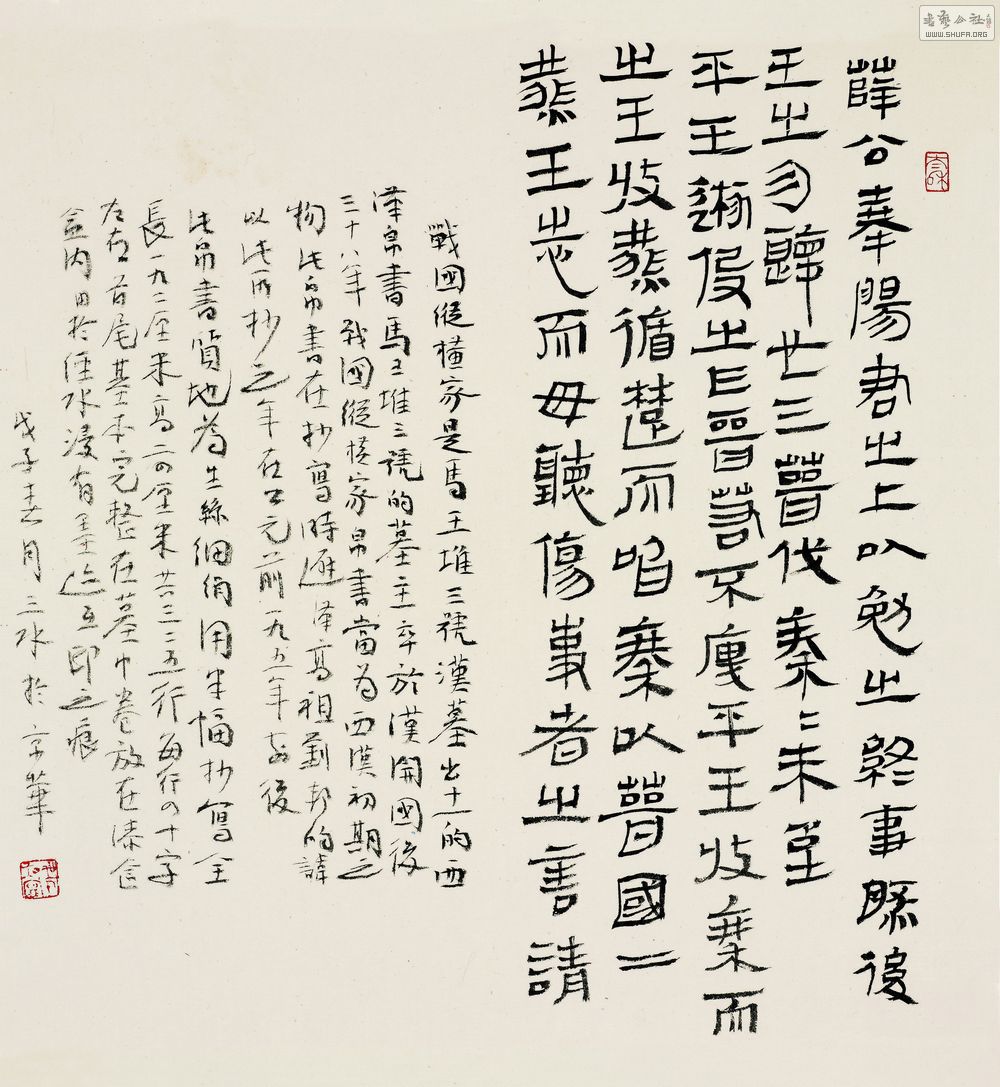 薛公奉陽君之上以勉之終事縣後
王之勾歸也三晉伐秦=未至
平王遬伇之曰晉若不度平王收秦而
之王收燕循楚而啗秦以晉國二
燕王志而毋聽傷事者之言請
戰國縱橫家是馬王堆三號漢墓出土的西
漢帛書馬王堆三號的墓主卒於漢開國後
三十八年戰國縱横家帛書當為西漢初期之
物此帛書在抄寫時避漢高祖劉邦的諱
以此所抄之年在公元前一九五年前後
此帛書質地為生絲細絹用半幅抄寫全
長一九二厘米高二四厘米共三二五行每行四十字
左右首尾基本完整在墓中卷放在漆食
盒内因於經水浸有墨迹互印之痕
戊子春月三水於京華
書藝公社
WWW.SHUFA.ORG